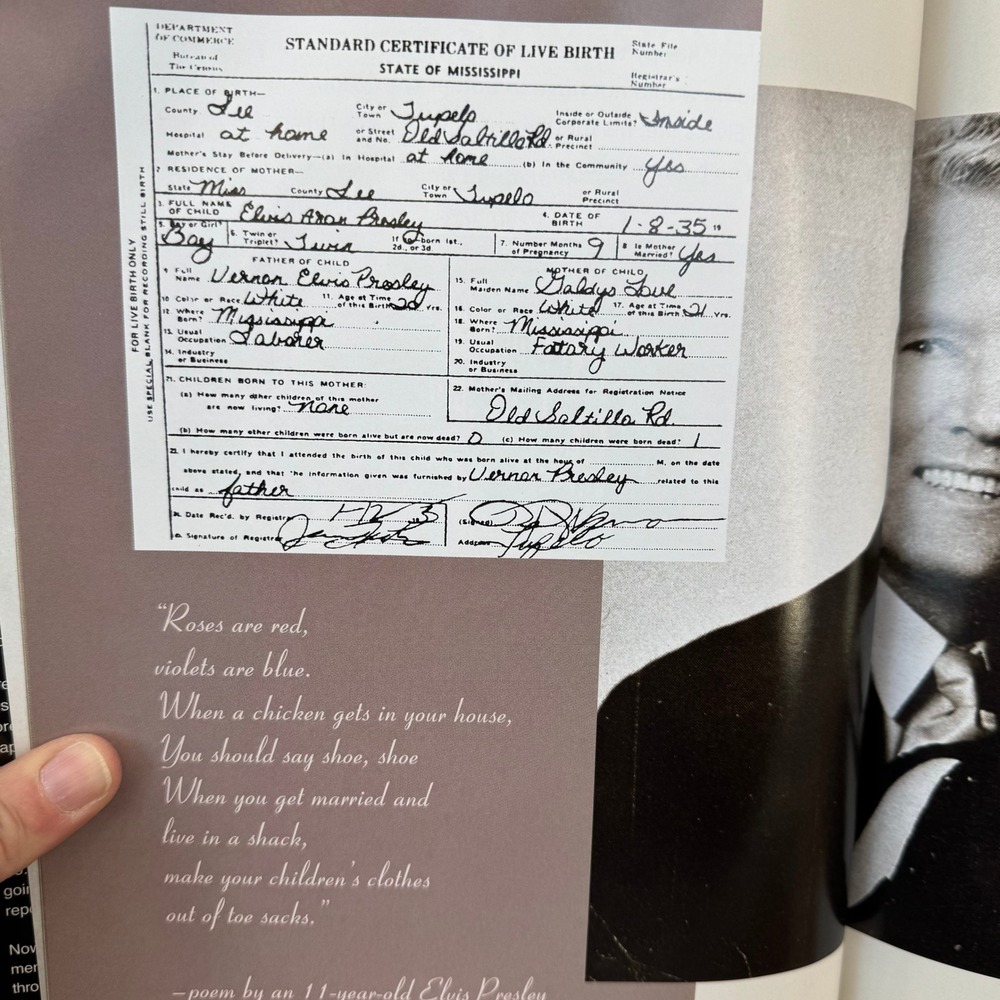 DEPARTMENT
OF COMMERCE
Bureau of
The Census
STANDARD CERTIFICATE OF LIVE BIRTH
STATE OF MISSISSIPPI
State File
Number
Registrar's
Number
FOR LIVE BIRTH ONLY
USE SPECIAL BLANK FOR RECORDING STILL BIRTH
1. PLACE OF BIRTH—
County Lee City or Town Tupelo Inside or Outside Corporate Limits? Inside
Hospital at home or Street and No. Old Saltillo Rd. or Rural Precinct
Mother's Stay Before Delivery—(a) In Hospital at home (b) In the Community Yes
2 RESIDENCE OF MOTHER—
State Miss County Lee City or Town Tupelo or Rural Precinct
3. FULL NAME OF CHILD Elvis Aron Presley 4. DATE OF BIRTH 1-8-35 19
5. Boy or Girl? Boy 6. Twin or Triplet? Twin If born 1st., 2d., or 3d. 7. Number Months of Pregnancy 9 8 Is Mother Married? Yes
FATHER OF CHILD
9 Full Name Vernon Elvis Presley
10 Color or Race White 11. Age at Time of this Birth
12. Where Born? Mississippi
13. Usual Occupation Laborer
14. Industry or Business
MOTHER OF CHILD
15. Full Maiden Name Galdys Love
16. Color or Race White 17. Age at Time of this Birth 21 Yrs.
18. Where Born? Mississippi
19. Usual Occupation Fatory Worker
20. Industry or Business
21. CHILDREN BORN TO THIS MOTHER:
(a) How many other children of this mother
are now living? none
22. Mother's Mailing Address for Registration Notice
Old Saltilla Rd.
(b) How many other children were born alive but are now dead? 0 (c) How many children were born dead? 1
23. I hereby certify that I attended the birth of this child who was born alive at the hour of M. on the date
above stated, and that the information given was furnished by Vernon Presley related to this
child as father
24. Date Rec'd. by Registrar (Signed)
Signature of Registrar Address Tupelo
"Roses are red,
violets are blue.
When a chicken gets in your house,
You should say shoe, shoe
When you get married and
live in a shack,
make your children's clothes
out of toe sacks."
—poem by an 11-year-old Elvis Presley
goin
Now
thro